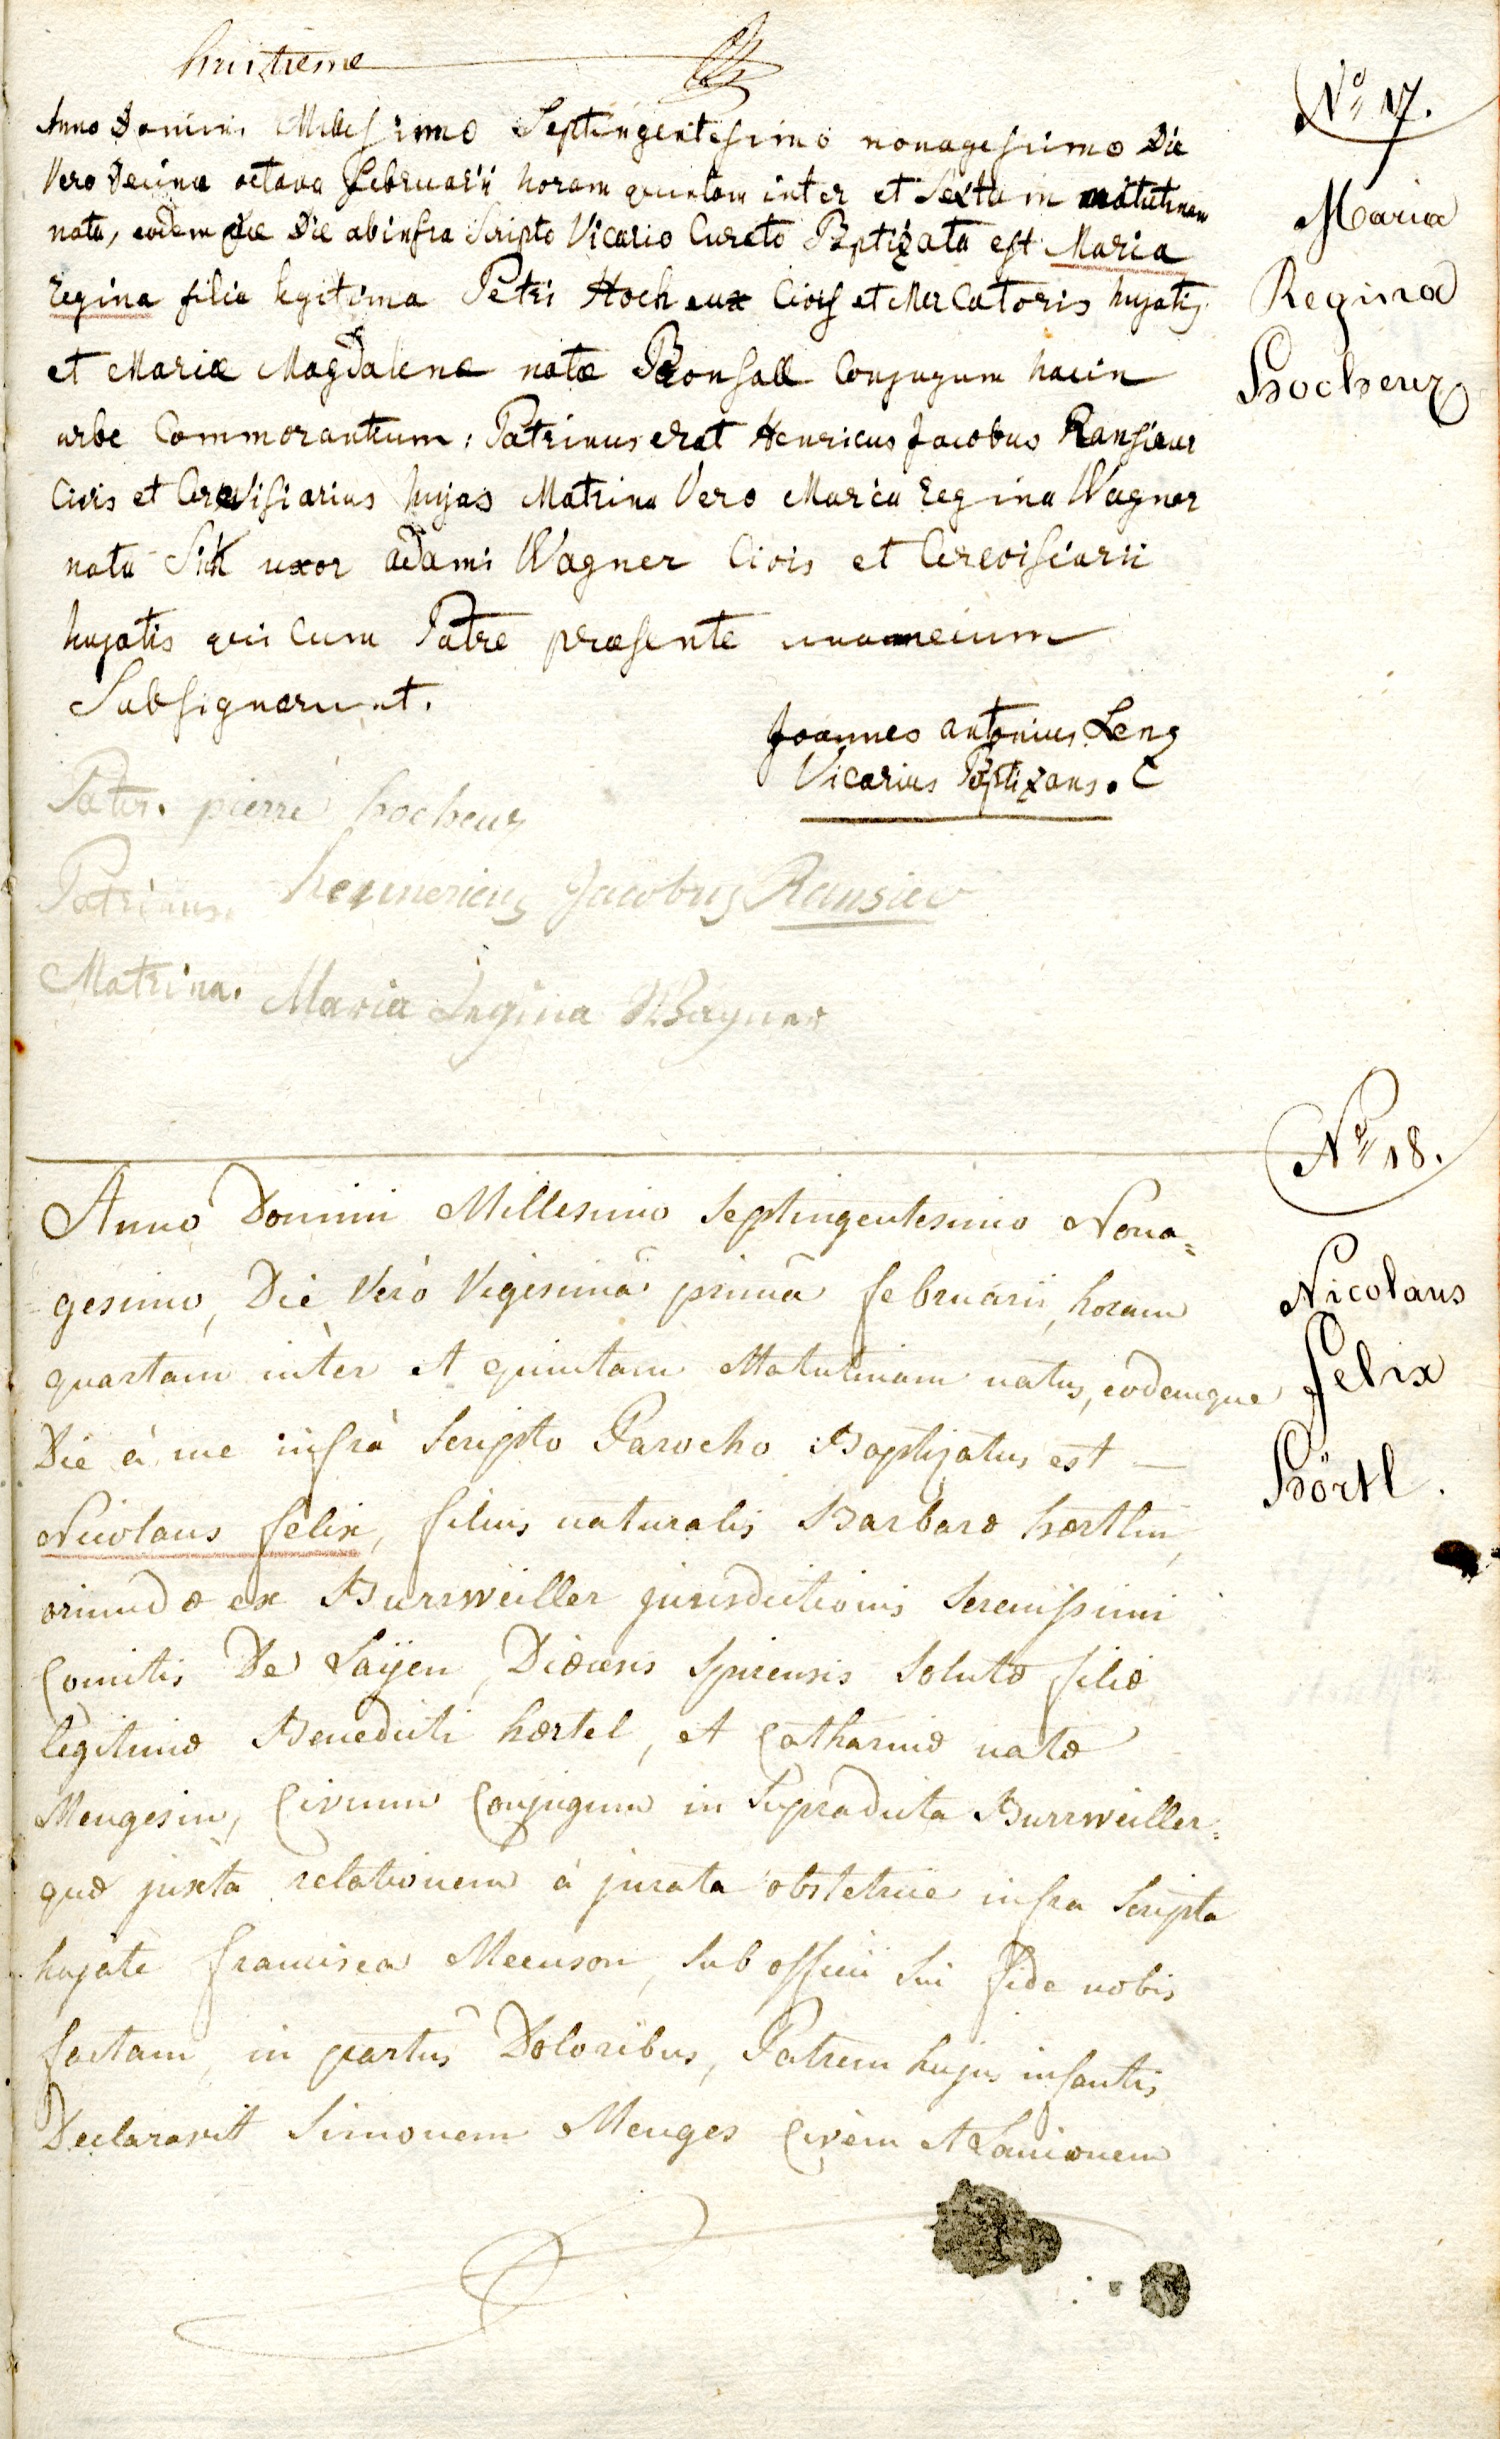 huitieme
Nº 17.
Anno Domini Millesimo Septingentesimo nonagesimo Die
Vero Decima octava Februarii horam quintam inter et Sextam matutinam
nata, eodem Die ab infra Scripto Vicario Curato Bptizata est Maria
Regina filia legitima Petri Hocheux Civis et Mercatoris hujatis
et Mariæ Magdalenæ natæ Ronsall Conjugum hacin
urbe Commorantium: Patrinus erat Henricus Jacobus Ransieur
Civis et Cerevisiarius hujas Matrina Vero Maria Regina Wagner
nata Sitt uxor adami Wagner Civis et Cerevisiarii
hujatis qui cum Patre præsente una mecum
Subsignarunt.
Maria
Regina
Hocheux
Joannes antonius Leng
Vicarius Bptizans. C
Pater. pierre hocheux
Patrinus. hennericus Jacobus Ransieur
Matrina. Maria Regina Wagner
Nº 18.
Anno Domini Millesimo Septingentesimo Nona=
gesimo, Die Verò Vigesimâ primâ februarii, horam
quartam intèr et quintam Matutinam natus, eodemque
Die à me infrà Scripto Parocho Baptizatus est —
Nicolaus felix, filius naturalis Barbaræ hærtlin,
oriundæ ex Burrweiller jurisdictionis Serenissimi
Comitis De Laÿen, Diœcesis Spirensis Solutæ filiæ
legitimæ Benedicti hærtel, et Catharinæ natæ
Mengesin, Civium Conjugum in Supradicta Burrweiller=
quæ juxta relationem à jurata obstetrice infra Scripta
hujate francisca Meenson, Sub officii Sui fide nobis
factam, in partûs Doloribus, Patrem hujus infantis
Declaravit Simonem Menges Civem et Lanionem
Nicolaus
felix
Hörtl.